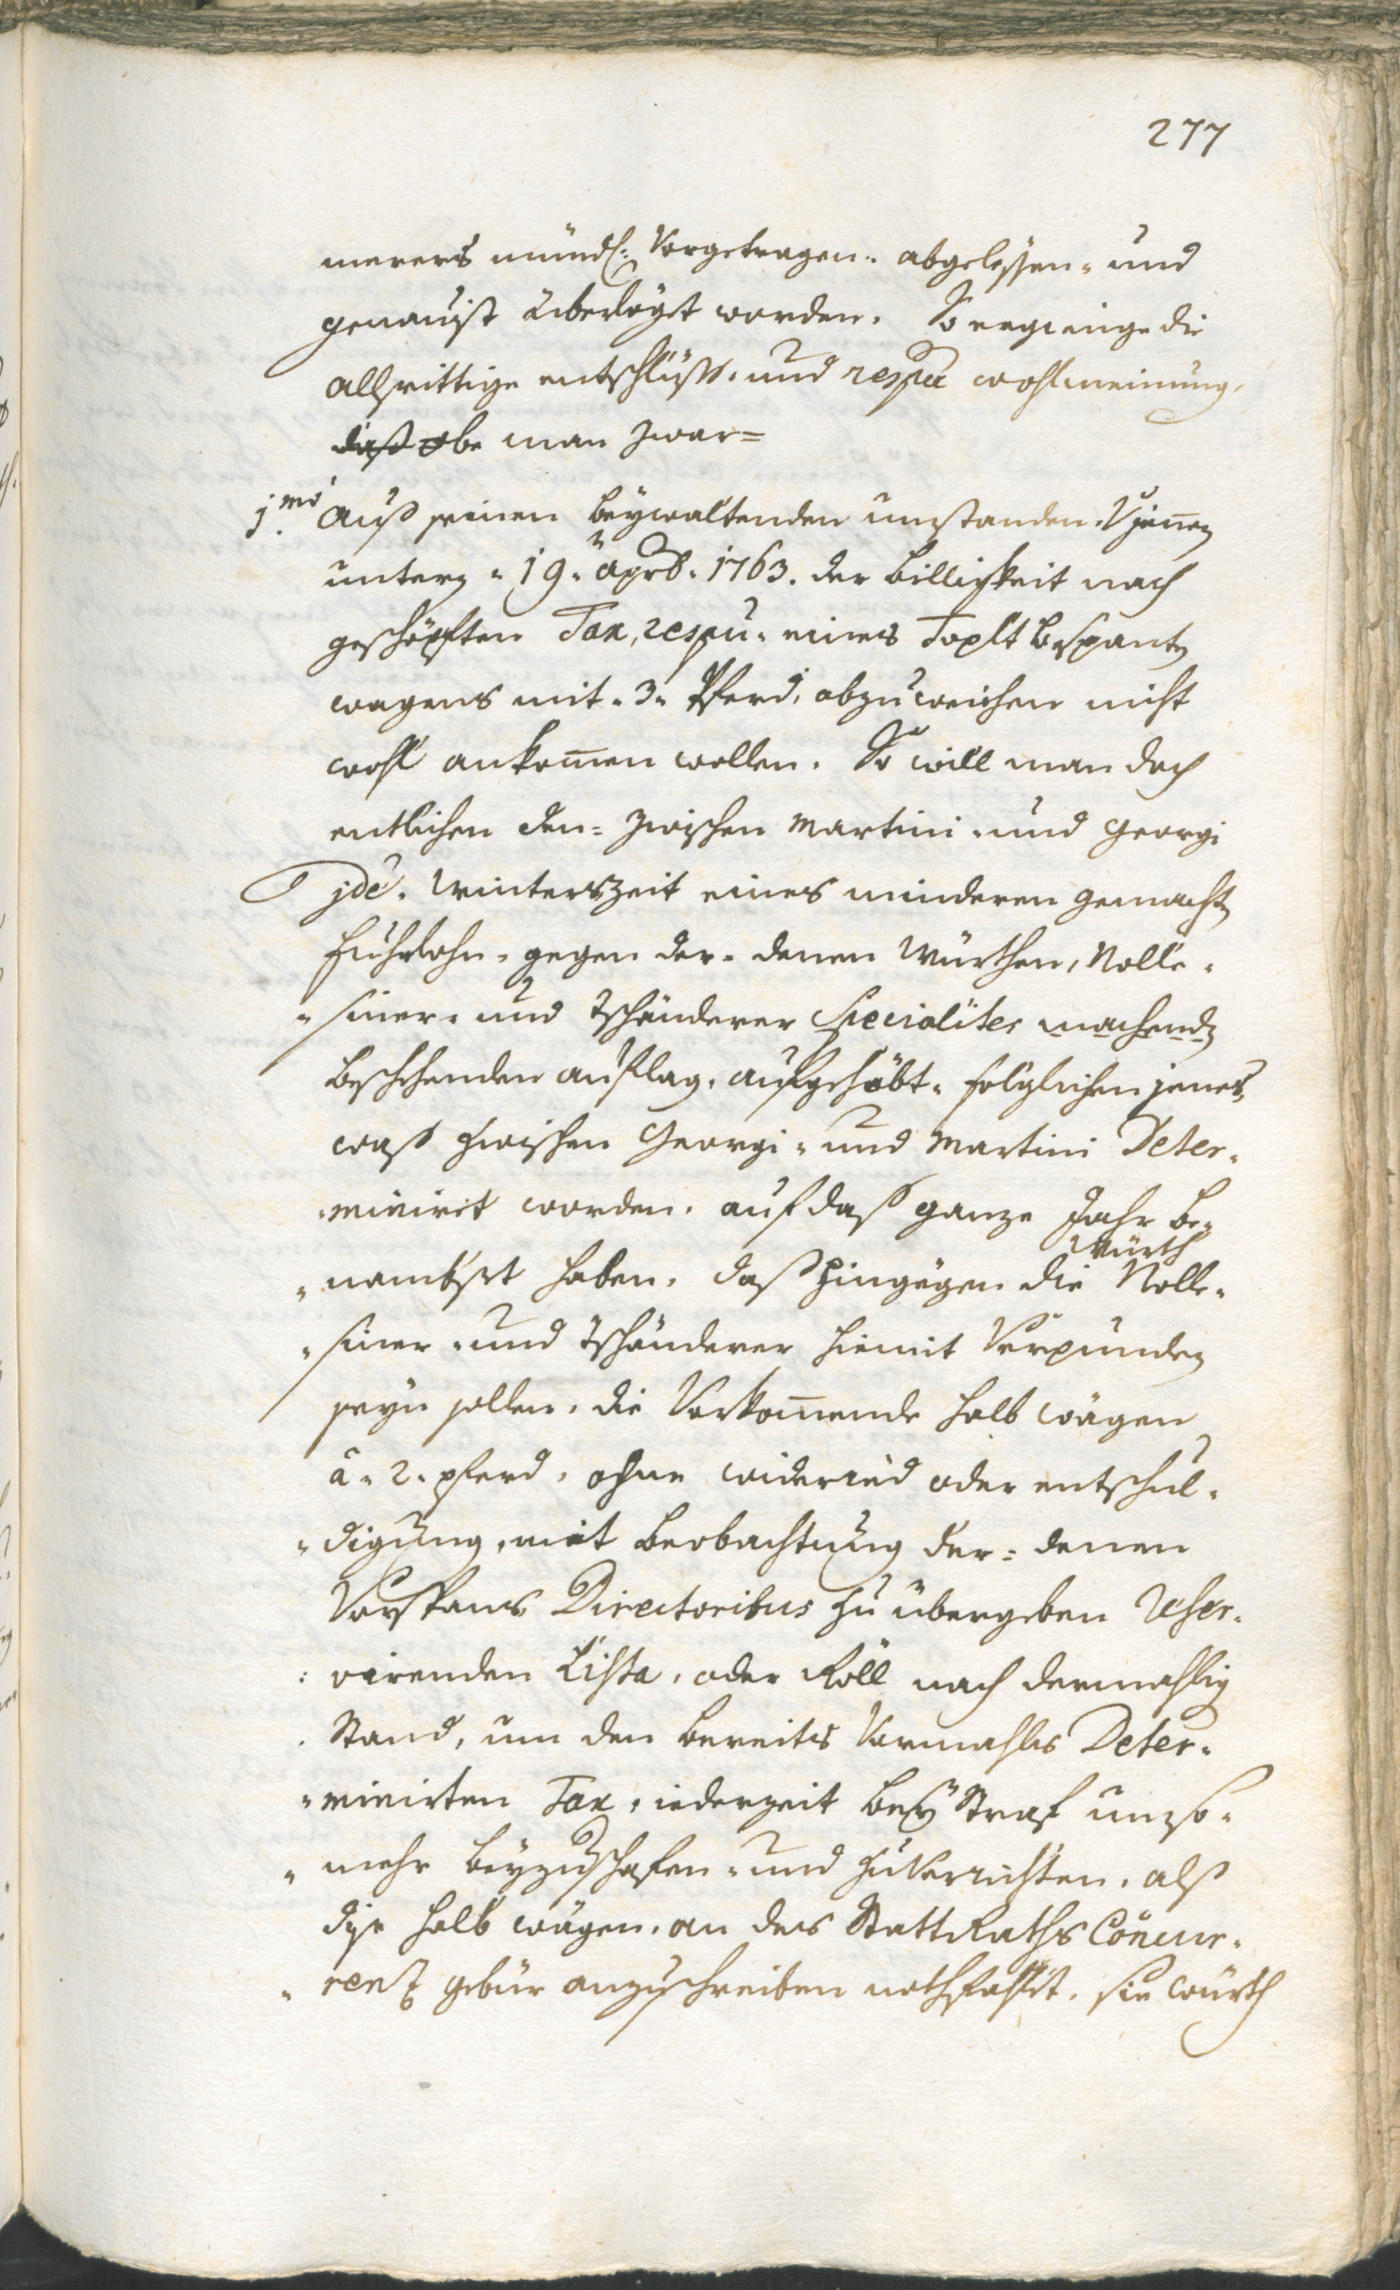 277
merers mündl: Vorgetragen- abgelössen- und
genauist überlögt worden. So ergienge die
allseittige entschlüss- und respu wohlmeinung,
daß obe man zwar=
1.mo Auß seinen beywaltenden umstanden, Vjennen
unterm 19. April. 1763. der billigkeit nach
geschöpften Tax, respu. eines toplt bespantn
wagens mit 3. Pferd, abzuweichen nicht
wohl ankom̄en wollen. So will man doch
entlichen den- zwischen Martini- und Georgi
id̃e. Winterszeit eines minderen gemachtn
fuhrlohn, gegen der- denen Würthen, Nolle-
-siner- und Tschänderer Specialiter machendn
beschehenden auflag, aufgehöbt- folglichen jenes,
waß zwischen Georgi- und Martini Deter-
-minirt worden, auf daß ganze Jahr be-
-nambset haben, daß hingegen die Würth Nolle-
-siner- und Tschänderer hiemit Verpunden
seyn sollen, die Vorkom̄ende halb wägen
à 2. pferd, ohne widerred oder entschul-
-digung, mit beobachtung der- denen
Vorspans Directoribus zu übergeben reser-
-virenden Lista, oder Roll nach dermahlig
Stand, um den bereits Vormahls Deter-
-minirten Tax, iederzeit bey Straf umso-
-mehr beyzuschafen- und zuverrichten, alß
dise halb wägen, an des Statt Raths Concur-
-renz gebür anzuschreiben nothfahlt, sie Würth